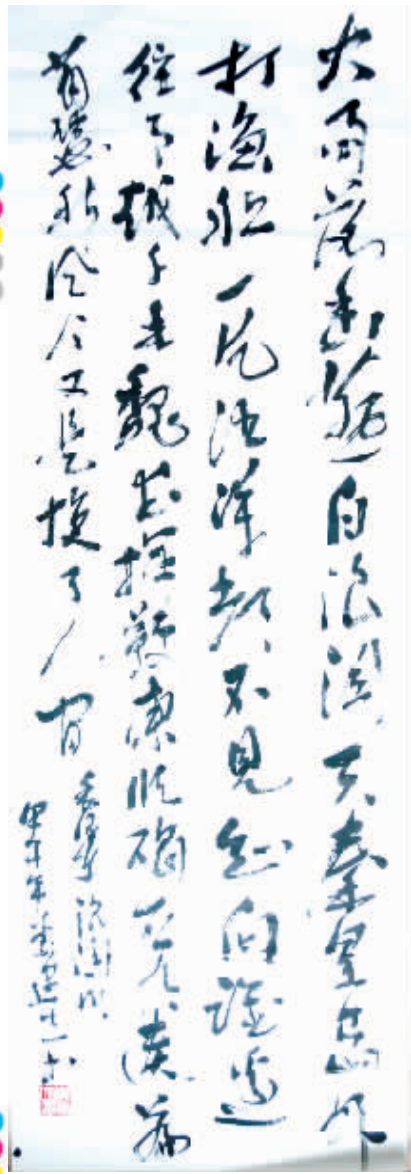 大雨落幽燕白浪滔天秦皇島外
打漁船一片汪洋都不見知向誰邊
往事越千年魏武揮鞭東臨碣石有遺篇
蕭瑟秋風今又是換了人間
毛澤東浪淘沙
甲午年